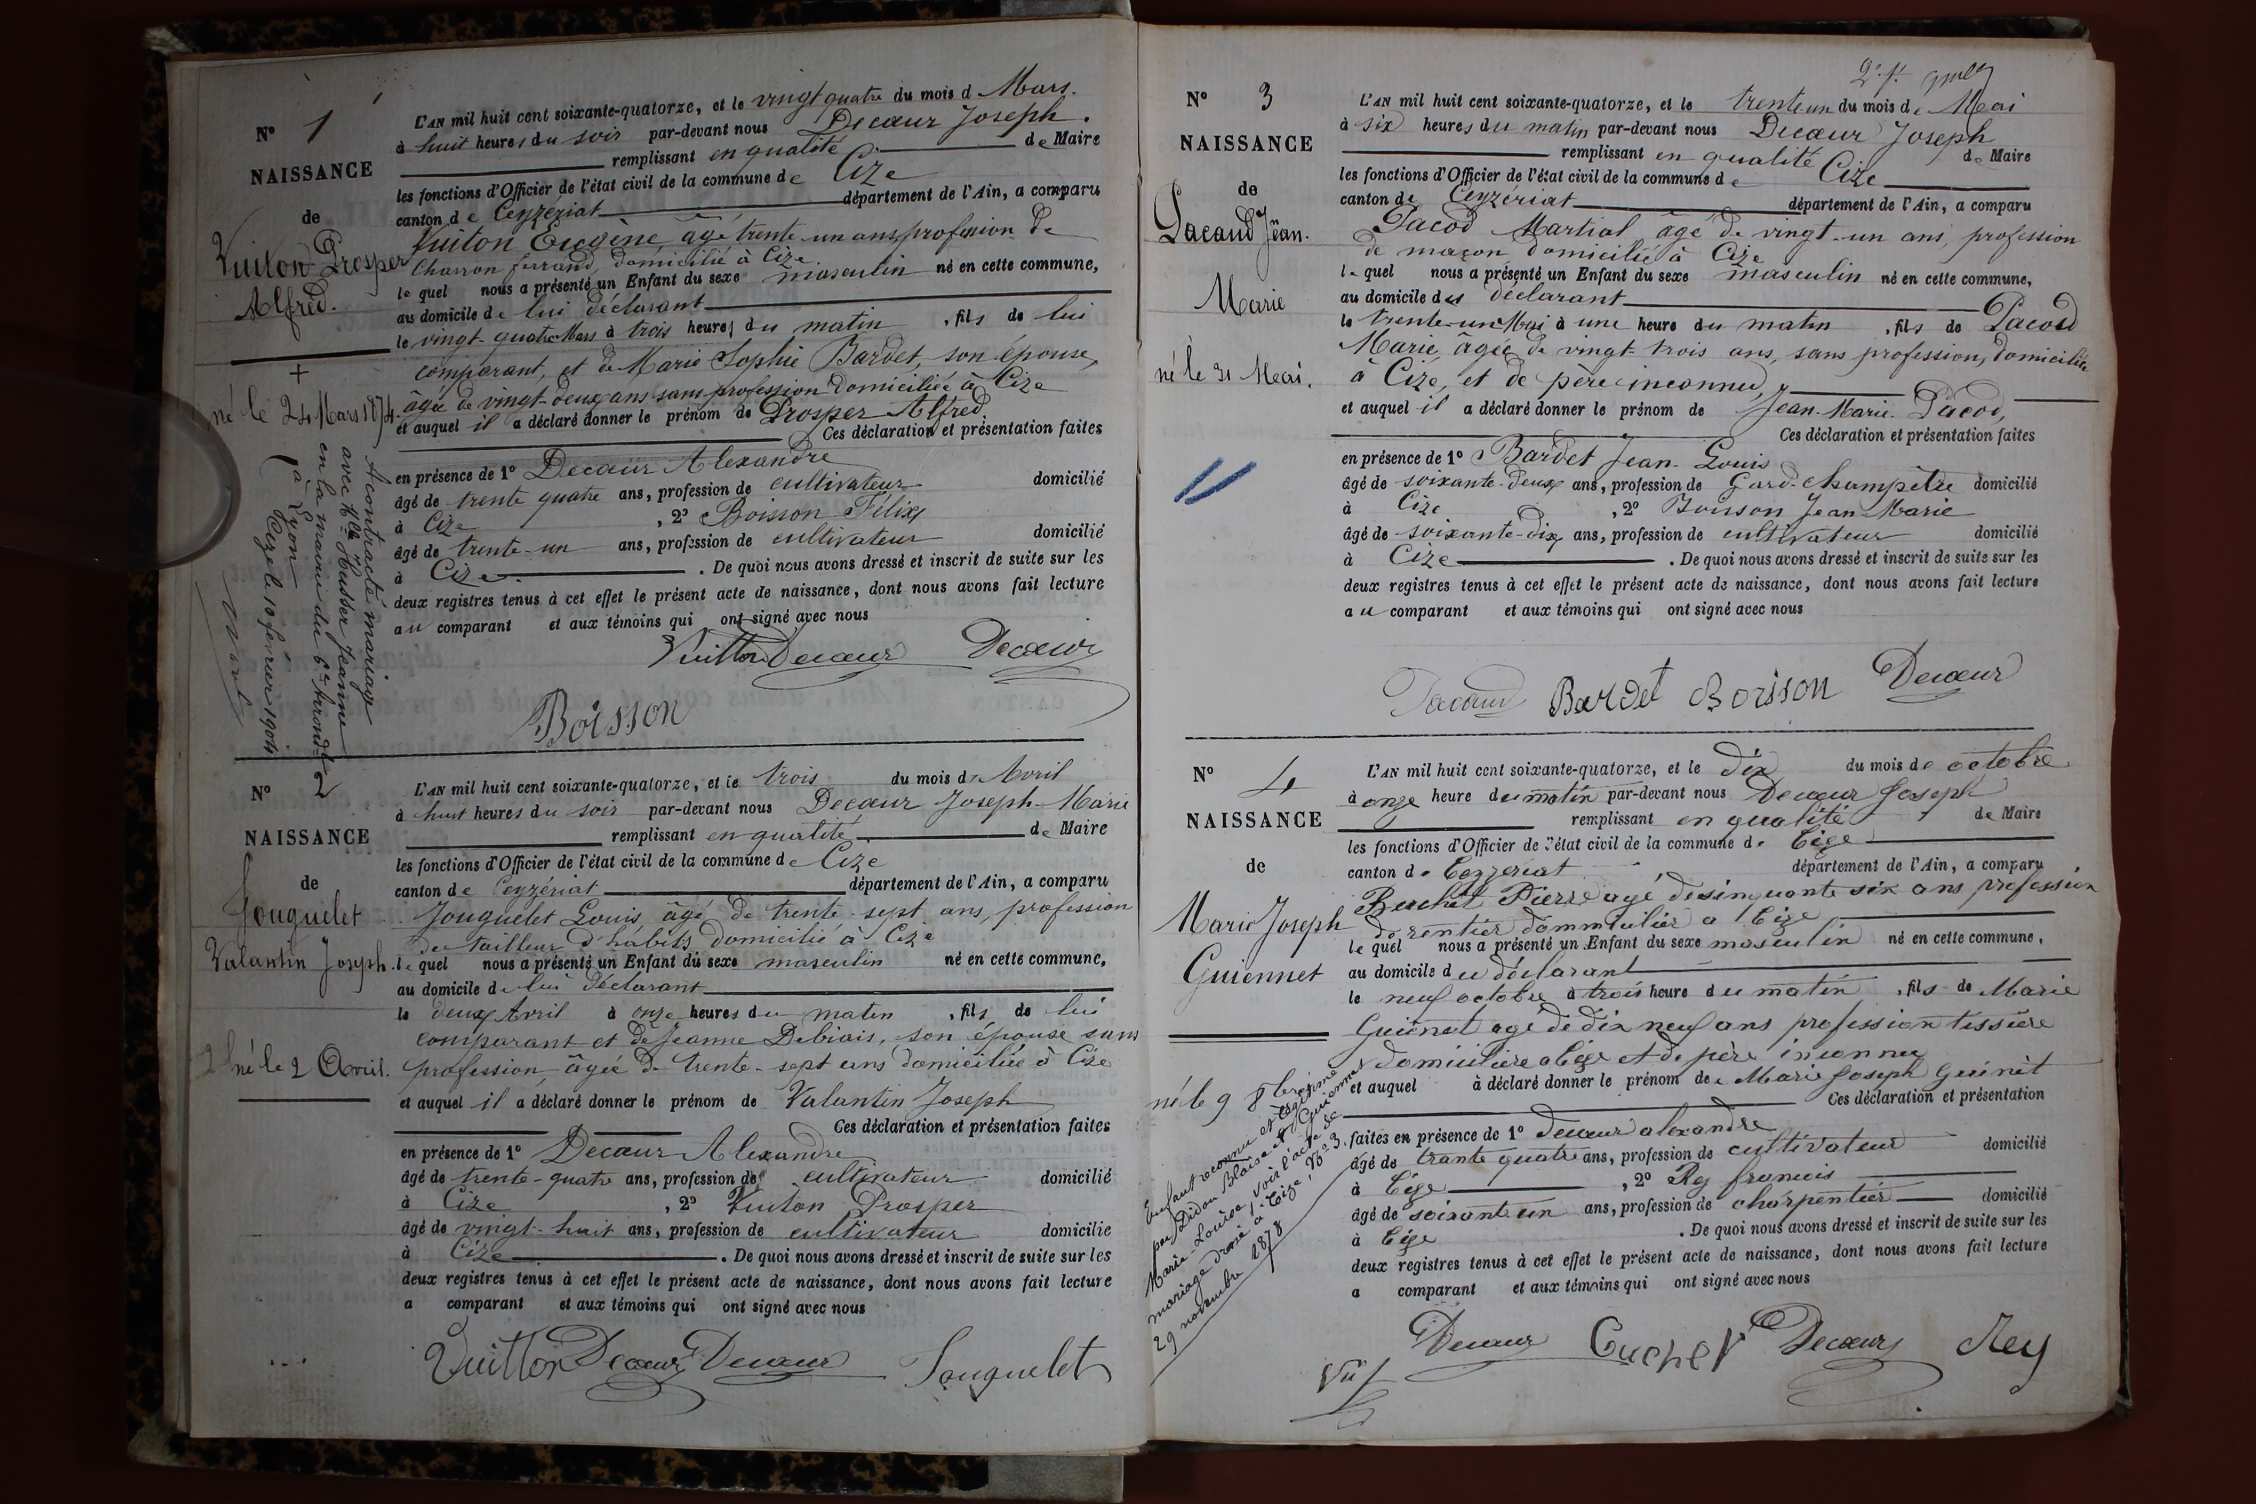 N° 1
NAISSANCE
de
Vuiton Prosper
Alfred.
né le 24 Mars 1874.
A contracté mariage
avec Mlle Husser Jeanne
en la mairie du 6e Arrondt
à Lyon
Cize le 10 février 1904
L'AN mil huit cent soixante-quatorze, et le vingt quatre du mois d Mars.
à huit heures du soir par-devant nous Decœur Joseph.
remplissant en qualité de Maire
les fonctions d'Officier de l'état civil de la commune de Cize
canton de Ceyzériat département de l'Ain, a comparu
Vuiton Eugène, âgé trente-un ans, profession de
Charron ferrand, domicilié à Cize.
lequel nous a présenté un Enfant du sexe masculin né en cette commune,
au domicile de lui déclarant
le vingt-quatre Mars à trois heures du matin, fils de lui
comparant, et de Marie Sophie Bardet, son épouse,
âgée de vingt-deux ans sans profession domiciliée à Cize
et auquel il a déclaré donner le prénom de Prosper Alfred.
Ces déclaration et présentation faites
en présence de 1° Decœur Alexandre
âgé de trente quatre ans, profession de cultivateur domicilié
à Cize, 2° Boisson Félix
âgé de trente-un ans, profession de cultivateur domicilié
à Cize. De quoi nous avons dressé et inscrit de suite sur les
deux registres tenus à cet effet le présent acte de naissance, dont nous avons fait lecture
au comparant et aux témoins qui ont signé avec nous
Vuitton Decœur Decœur
Boisson
N° 2
NAISSANCE
de
Jouguelet
Valantin Joseph.
né le 2 Avril.
L'AN mil huit cent soixante-quatorze, et le trois du mois d'Avril
à huit heures du soir par-devant nous Decœur Joseph-Marie
remplissant en qualité de Maire
les fonctions d'Officier de l'état civil de la commune de Cize
canton de Ceyzériat département de l'Ain, a comparu
Jouguelet Louis, âgé de trente-sept ans, profession
de tailleur d'habits domicilié à Cize
lequel nous a présenté un Enfant du sexe masculin né en cette commune,
au domicile de lui déclarant
le deux Avril à onze heures du matin, fils de lui
comparant et de Jeanne Debiais, son épouse sans
profession, âgée de trente-sept ans domiciliée à Cize
et auquel il a déclaré donner le prénom de Valantin Joseph
Ces déclaration et présentation faites
en présence de 1° Decœur Alexandre
âgé de trente-quatre ans, profession de cultivateur domicilié
à Cize, 2° Vuiton Prosper
âgé de vingt-huit ans, profession de cultivateur domicilié
à Cize. De quoi nous avons dressé et inscrit de suite sur les
deux registres tenus à cet effet le présent acte de naissance, dont nous avons fait lecture
a comparant et aux témoins qui ont signé avec nous
Vuitton Decœur Decœur Jouguelet
N° 3
NAISSANCE
de
Pacaud Jean.
Marie
né le 31 Mai.
L'AN mil huit cent soixante-quatorze, et le trente un du mois de Mai
à six heures du matin par-devant nous Decœur Joseph
remplissant en qualité de Maire
les fonctions d'Officier de l'état civil de la commune de Cize
canton de Ceyzériat département de l'Ain, a comparu
Pacod Martial âgé de vingt-un ans, profession
de maçon domicilié à Cize
lequel nous a présenté un Enfant du sexe masculin né en cette commune,
au domicile du déclarant
le trente-un Mai à une heure du matin, fils de Pacod
Marie, âgée de vingt-trois ans, sans profession, domiciliée
à Cize, et de père inconnu,
et auquel il a déclaré donner le prénom de Jean-Marie Pacod,
Ces déclaration et présentation faites
en présence de 1° Bardet Jean-Louis
âgé de soixante-deux ans, profession de Gard-Champêtre domicilié
à Cize, 2° Boisson Jean Marie
âgé de soixante-dix ans, profession de cultivateur domicilié
à Cize. De quoi nous avons dressé et inscrit de suite sur les
deux registres tenus à cet effet le présent acte de naissance, dont nous avons fait lecture
au comparant et aux témoins qui ont signé avec nous
Pacaud Bardet Boisson Decœur
N° 4
NAISSANCE
de
Marie Joseph
Guiennet
né le 9 8bre
Enfant reconnu et légitimé
par Didon Blaise et Guiennet
Marie-Louise, voir l'acte de
mariage dressé à Cize, N° 3.
29 novembre 1878
Vu
L'AN mil huit cent soixante-quatorze, et le dix du mois de octobre
à onze heure du matin par-devant nous Decœur Joseph
remplissant en qualité de Maire
les fonctions d'Officier de l'état civil de la commune de Cize
canton de Cezzeriat département de l'Ain, a comparu
Pierre agé de sinquante six ans profession
de rentier dommicilier a Cize
lequel nous a présenté un Enfant du sexe masculin né en cette commune,
au domicile du déclarant
le neuf octobre à trois heure du matin, fils de Marie
Guienet agé de dix neuf ans profession tissiere
domiciliere a Cize et de père inconnu
et auquel à déclaré donner le prénom de Marie Joseph Guinet
Ces déclaration et présentation
faites en présence de 1° Decœur alexandre
âgé de trante quatre ans, profession de cultivateur domicilié
à Cize, 2° Rey francois
âgé de soixante un ans, profession de charpentier domicilié
à Cize. De quoi nous avons dressé et inscrit de suite sur les
deux registres tenus à cet effet le présent acte de naissance, dont nous avons fait lecture
a comparant et aux témoins qui ont signé avec nous
Decœur Cuchet Decœur Rey